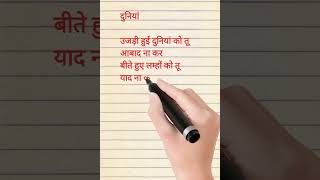 दुनियां
उजड़ी हुई दुनियां को तू
आबाद ना कर
बीते हुए लम्हों को तू
याद ना